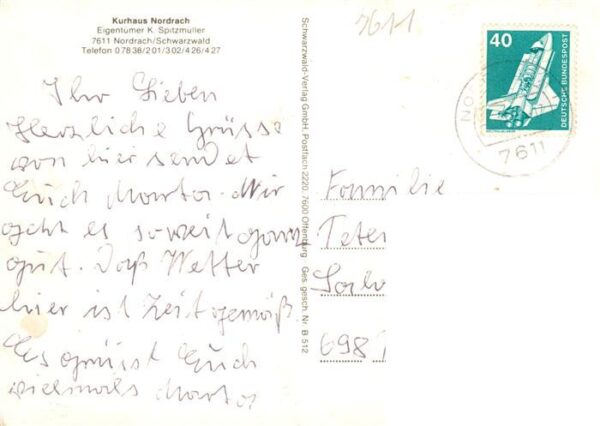 Kurhaus Nordrach
Eigentümer K. Spitzmüller
7611 Nordrach/Schwarzwald
Telefon 07838/201/302/426/427
Ihr Lieben
Herzliche Grüsse
von hier sendet
Euch Marta. Mir
geht es soweit ganz
gut. Daß Wetter
hier ist Zeitgemäß
Es grüsst Euch
vielmals Marta
Schwarzwald-Verlag GmbH, Postfach 2220, 7600 Offenburg Ges. gesch. Nr. B 512
7611
40
DEUTSCHE BUNDESPOST
7611
Familie
Peter
698